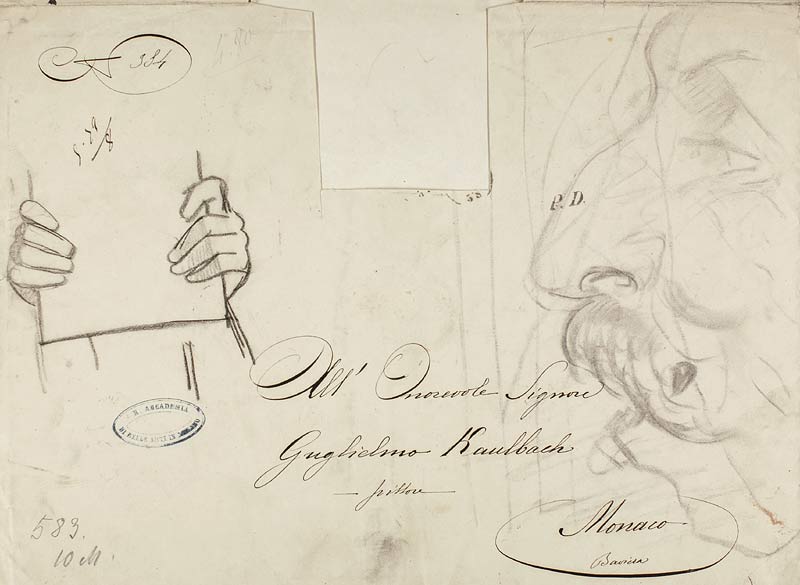 384
P. D.
R. ACCADEMIA
DI BELLE ARTI IN MILANO
All' Onorevole Signore
Guglielmo Kaulbach
pittore
Monaco
Baviera
583.
10 M.